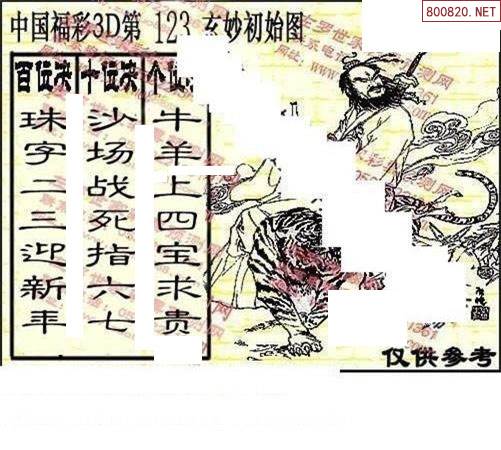 800820.NET
中国福彩3D第 123 玄妙初始图
百位决
珠字二三迎新年
十位决
沙场战死指六七
个位
牛羊上四宝求贵
仅供参考